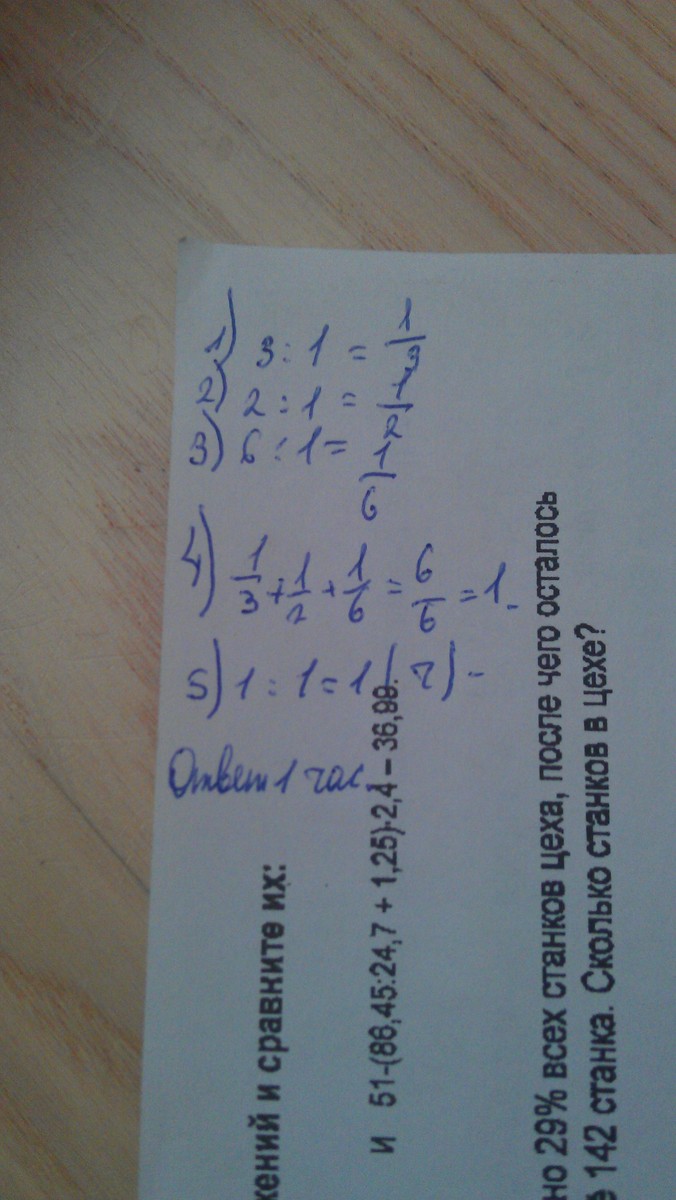 1) 3 : 1 = 1/3
2) 2 : 1 = 1/2
3) 6 : 1 = 1/6
4) 1/3 + 1/2 + 1/6 = 6/6 = 1.
5) 1 : 1 = 1 (ч) -
Ответ 1 час.
жений и сравните их:
и 51-(86,45:24,7 + 1,25)·2,4 – 36,99.
но 29% всех станков цеха, после чего осталось
е 142 станка. Сколько станков в цехе?